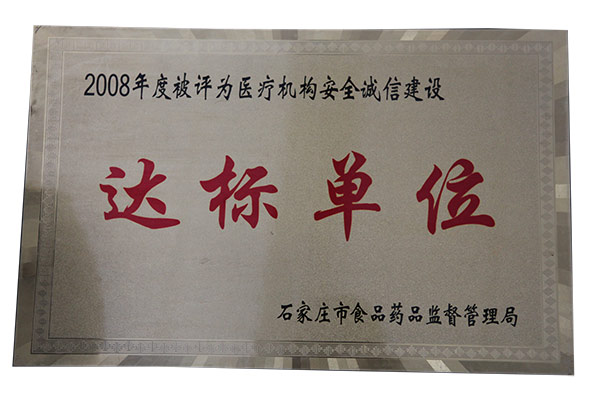 2008年度被评为医疗机构安全诚信建设
达标单位
石家庄市食品药品监督管理局